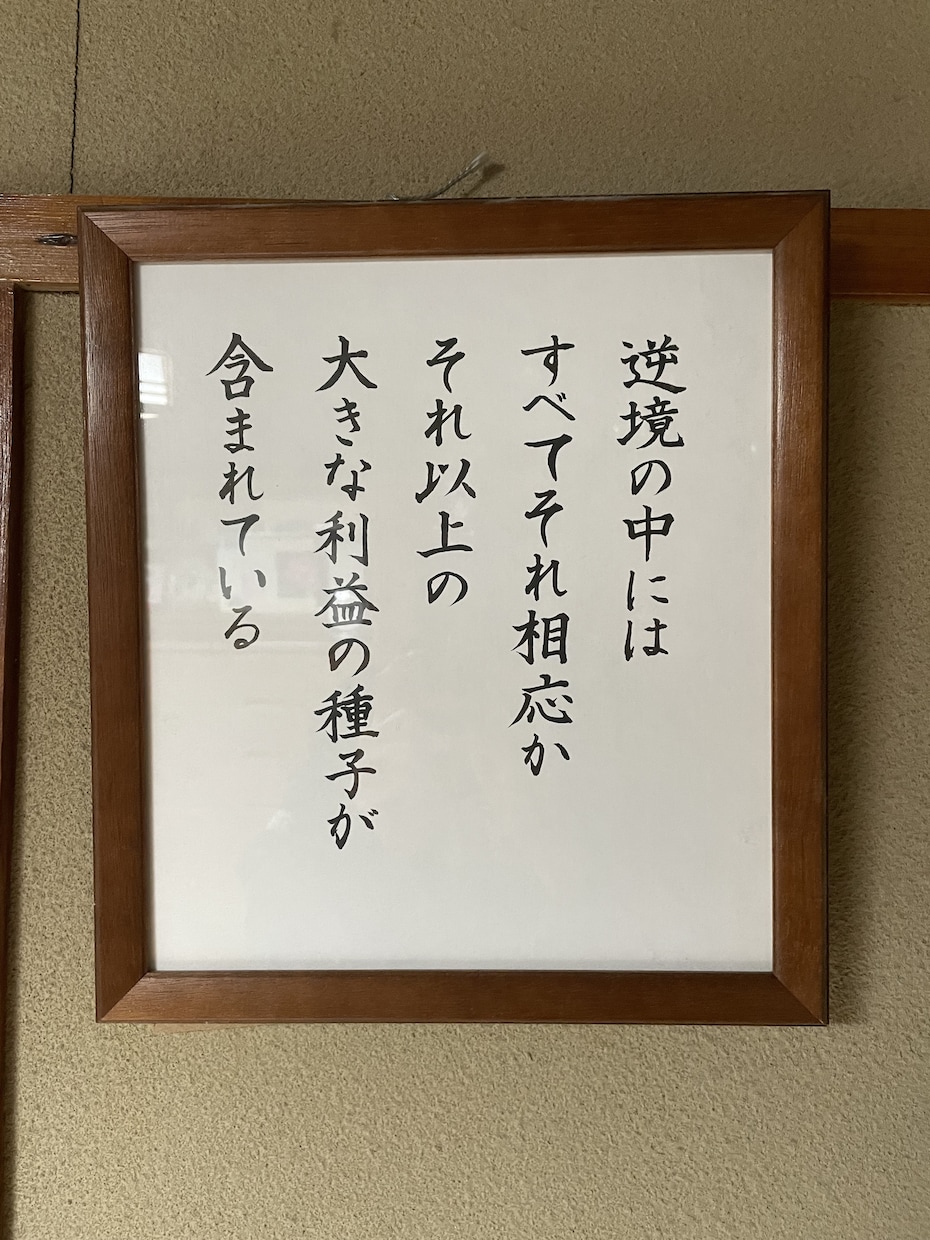 逆境の中には
すべてそれ相応か
それ以上の
大きな利益の種子が
含まれている